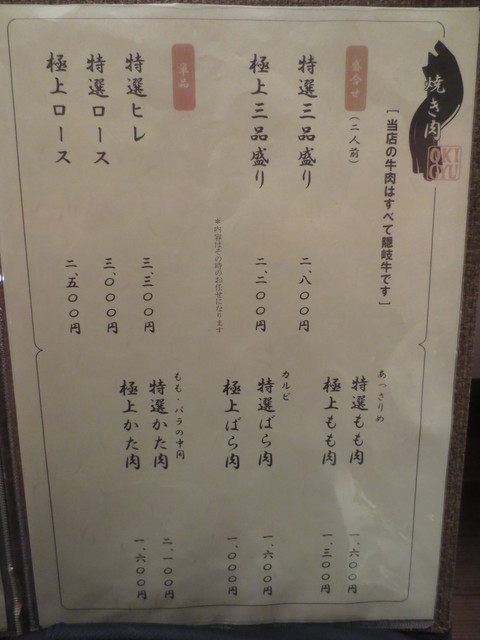 焼き肉
OKI
GYU
[当店の牛肉はすべて隠岐牛です]
盛合せ
(二人前)
特選三品盛り 二、八〇〇円
極上三品盛り 二、二〇〇円
*内容はその時のお任せになります
単品
特選ヒレ 三、三〇〇円
特選ロース 三、〇〇〇円
極上ロース 二、五〇〇円
あっさりめ
特選もも肉 一、六〇〇円
極上もも肉 一、三〇〇円
カルビ
特選ばら肉 一、六〇〇円
極上ばら肉 一、〇〇〇円
もも・バラの中間
特選かた肉 二、一〇〇円
極上かた肉 一、六〇〇円